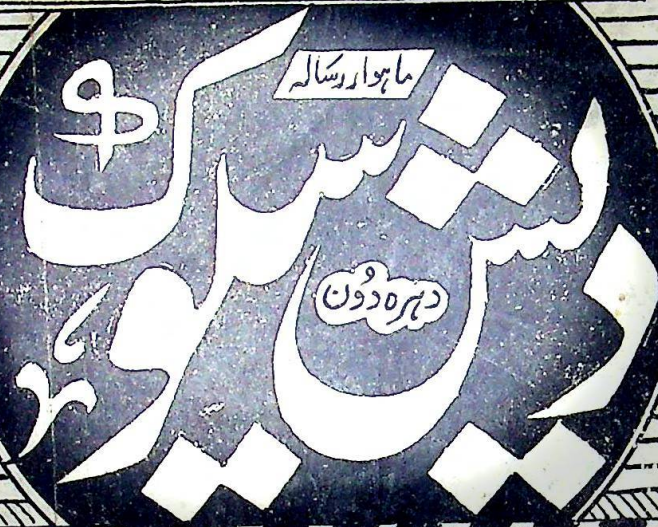 ماہوار رسالہ
دیش سیوک
دہرہ دُون